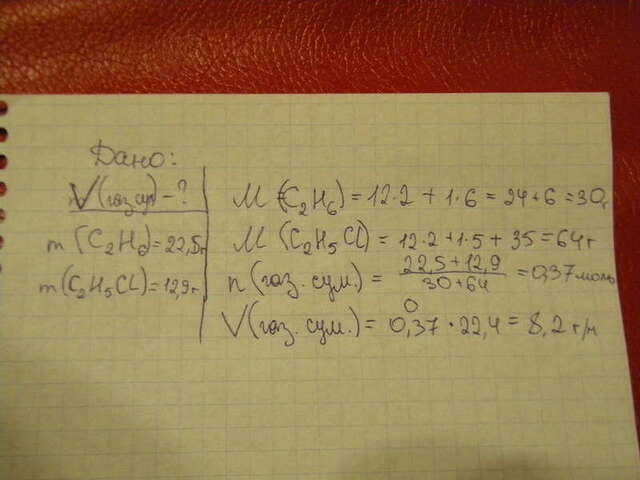 Дано:
V(газ.сум) - ?
m (C₂H₆) = 22,5г
m (C₂H₅Cl) = 12,9г
M (C₂H₆) = 12·2 + 1·6 = 24+6 = 30г
M (C₂H₅Cl) = 12·2+1·5 + 35 = 64г
n (газ. сум.) = (22,5 + 12,9)/(30+64) = 0,37 моль
V (газ. сум.) = 0,37 · 22,4 = 8,2 г/н